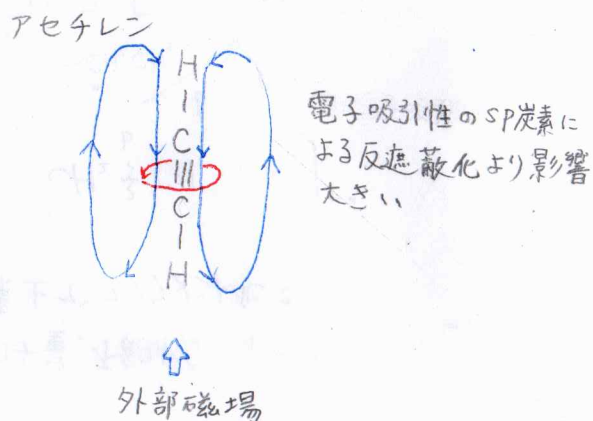 アセチレン
H
C
C
H
電子吸引性のsp炭素に
よる反遮蔽化より影響
大きい
外部磁場